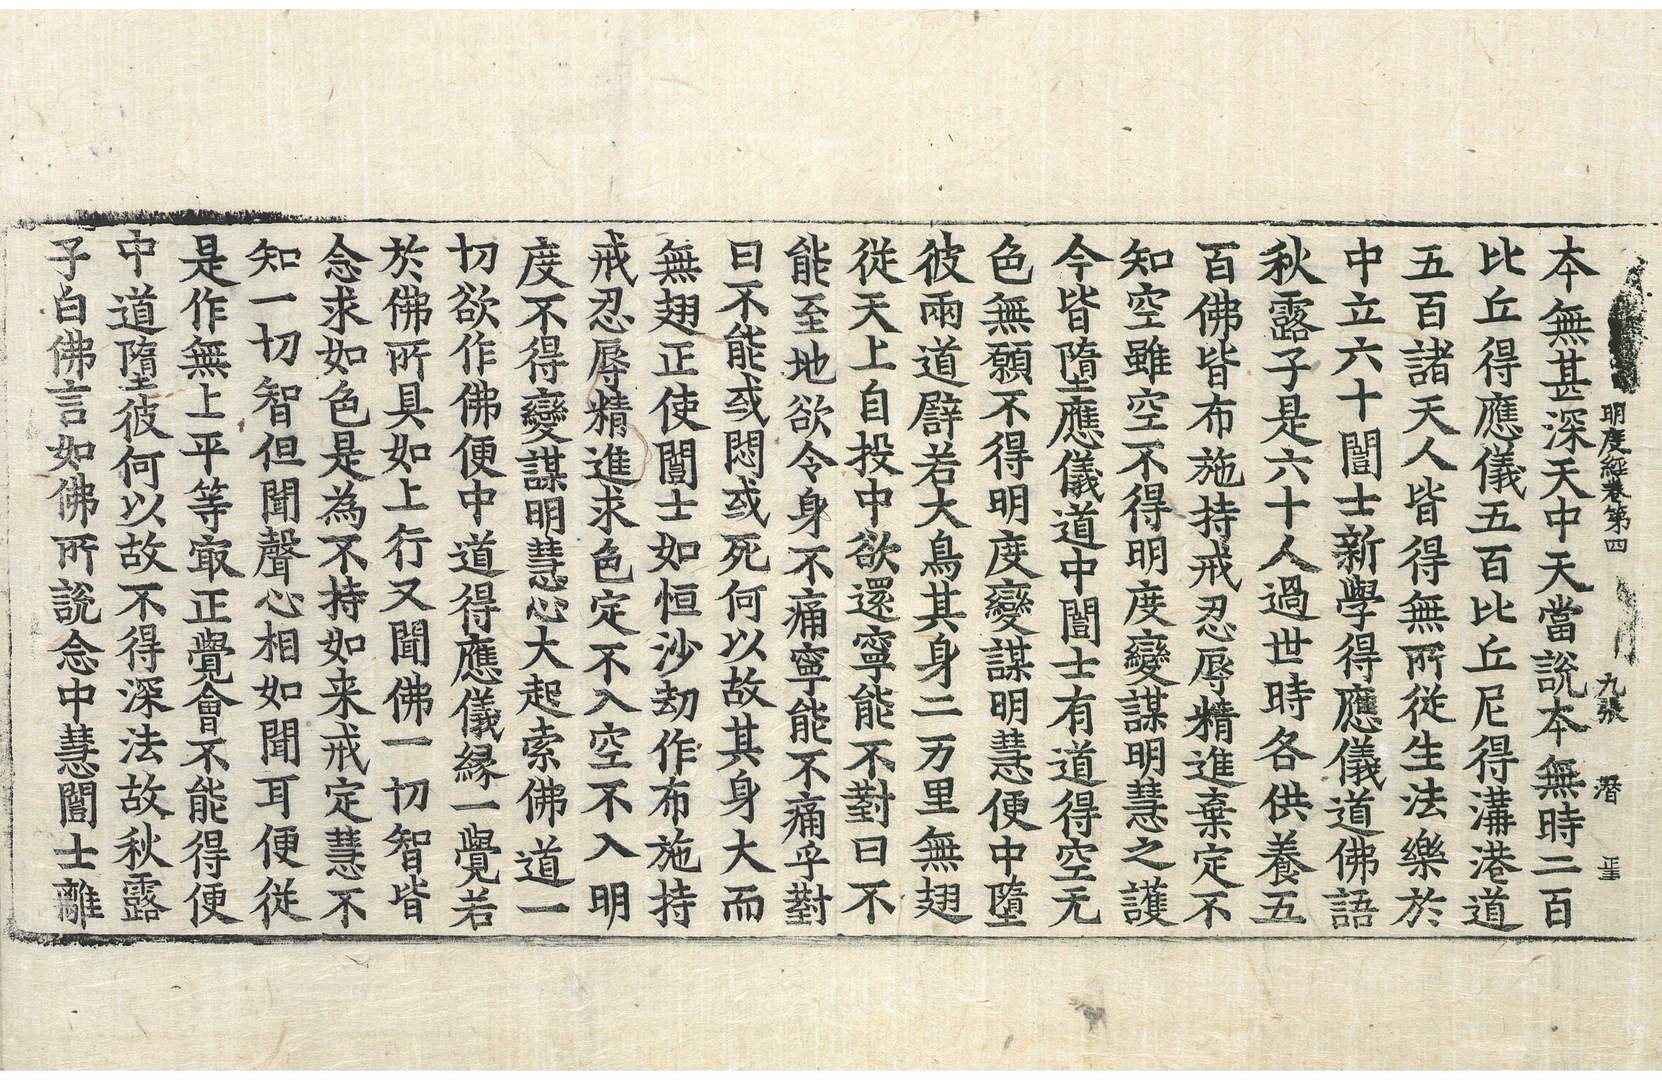 明度經卷第四　九張　潛　王
本無甚深天中天當說本無時二百
比丘得應儀五百比丘尼得溝港道
五百諸天人皆得無所從生法樂於
中立六十闓士新學得應儀道佛語
秋露子是六十人過世時各供養五
百佛皆布施持戒忍辱精進棄定不
知空雖空不得明度變謀明慧之護
今皆墮應儀道中闓士有道得空无
色無願不得明度變謀明慧便中墮
彼兩道譬若大鳥其身二万里無翅
從天上自投中欲還寧能不對曰不
能至地欲令身不痛寧能不痛乎對
曰不能或悶或死何以故其身大而
無翅正使闓士如恒沙劫作布施持
戒忍辱精進求色定不入空不入明
度不得變謀明慧心大起索佛道一
切欲作佛便中道得應儀緣一覺若
於佛所具如上行又聞佛一切智皆
念求如色是為不持如来戒定慧不
知一切智但聞聲心相如聞耳便從
是作無上平等㝡正覺會不能得便
中道墮彼何以故不得深法故秋露
子白佛言如佛所說念中慧闓士離